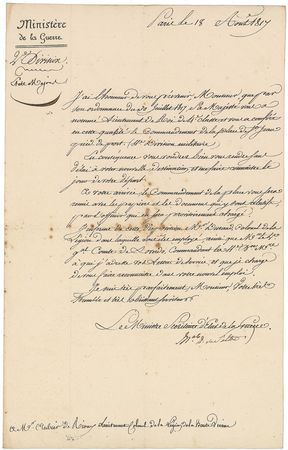 Ministère
de la Guerre.
2e Division
Etat Major
Paris le 18 Août 1817
J'ai l'honneur de vous prévenir, Monsieur, que par
son ordonnance du 30 Juillet 1817 Sa Majesté vous a
nommé Lieutenant de Roi de 4e Classe et vous a conféré
en cette qualité le Commandement de la place de St Jean
pied de port, Division militaire.
En conséquence vous voudrez bien vous rendre sans
délai à votre nouvelle destination, et me faire connaître le
jour de votre départ.
A votre arrivée, le Commandant de la place vous fera
avec les papiers et les documens qui y sont
officier qui en est provisoirement chargé.
J'informe de cette disposition Mr Colonel de la
Légion dans laquelle vous étiez employé, ainsi que Mr le Lt
Gal Comte de Commandant la Don Mre
à qui j'adresse vos lettres de service, et que je charge
de vous faire reconnaître dans votre nouvel emploi.
Je suis très parfaitement, Monsieur, Votre très
humble et très obéissant serviteur
Le Ministre Secrétaire d'Etat de la Guerre
A Mr de Lieutenant Colonel de la Légion de la